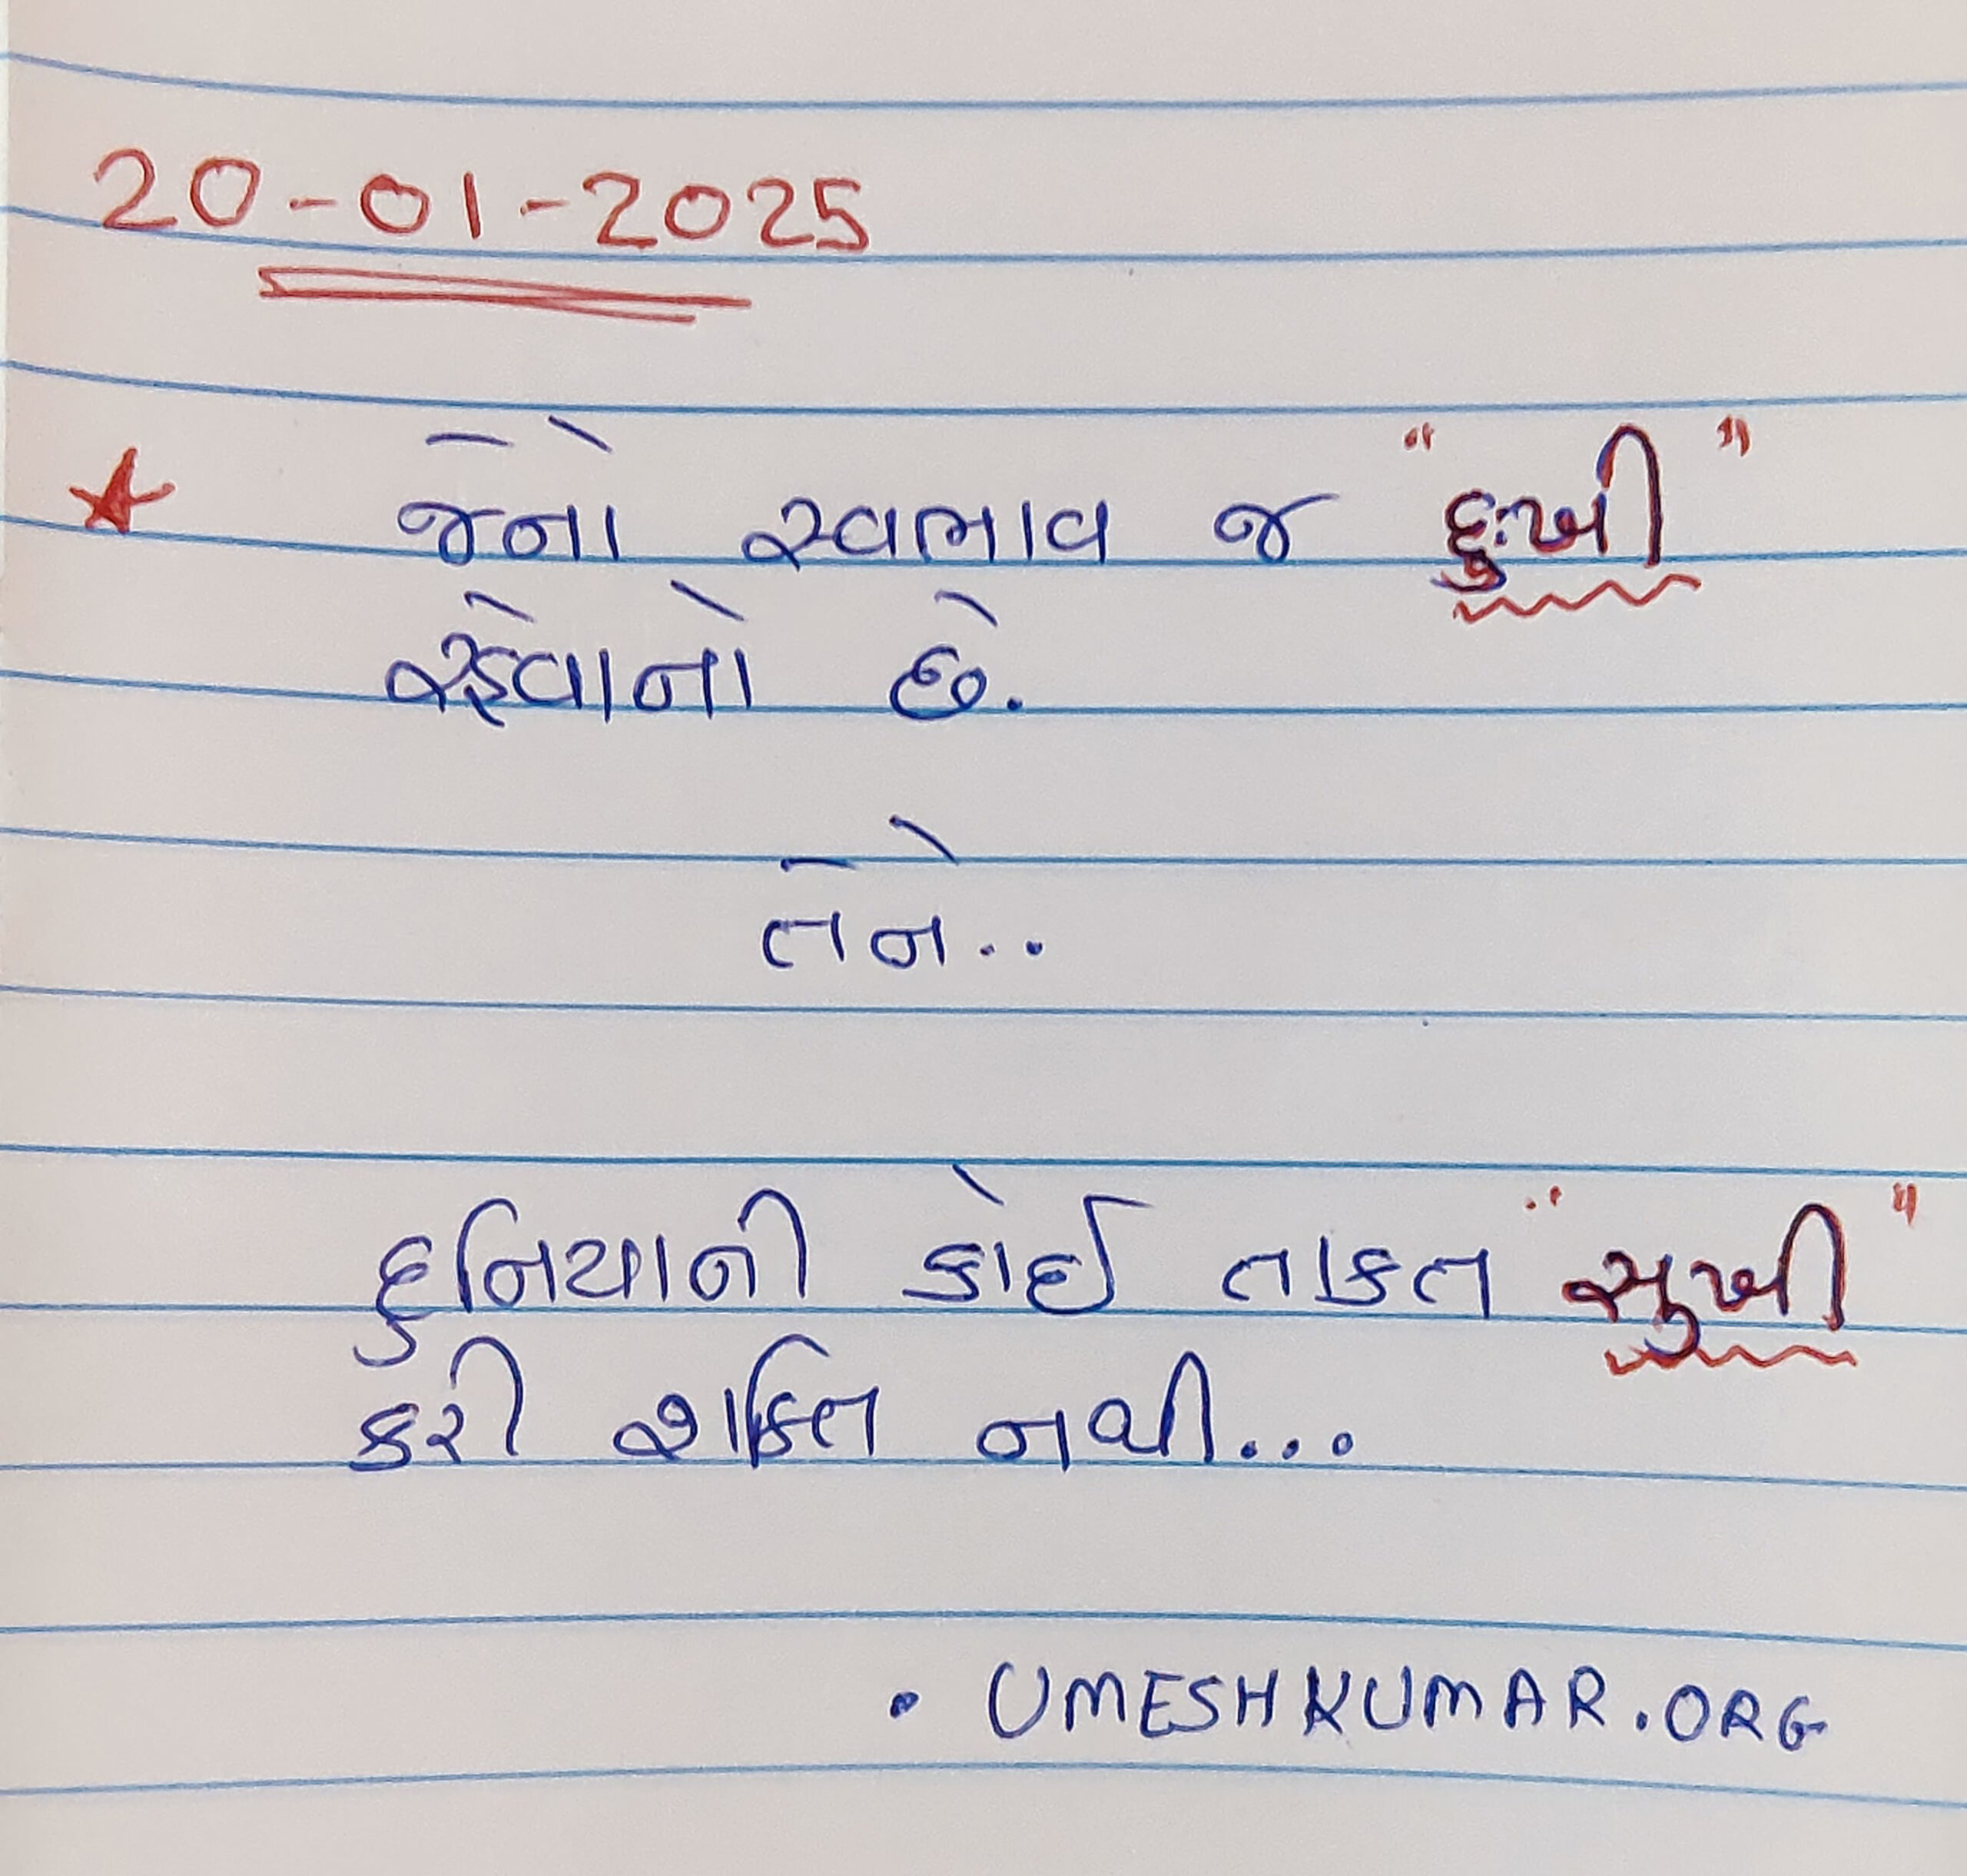 20-01-2025
★ જેનો સ્વભાવ જ "દુઃખી"
રહેવાનો છે.
તેને..
દુનિયાની કોઈ તાકત "સુખી"
કરી શકિત નથી...
. UMESHKUMAR.ORG